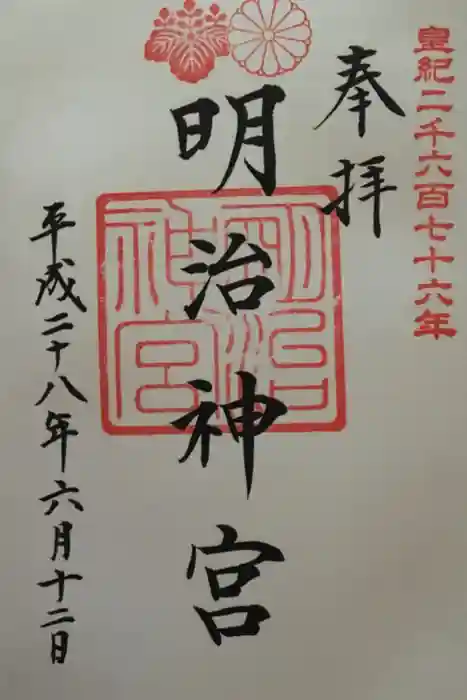 皇紀二千六百七十六年
奉拝
明治神宮
明治神宮
平成二十八年六月十二日